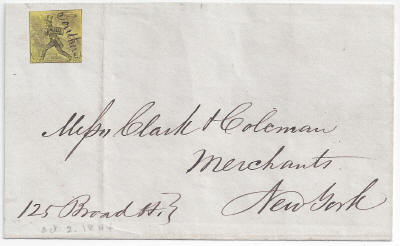 Messrs Clark & Coleman
Merchants
New York
125 Broad St.